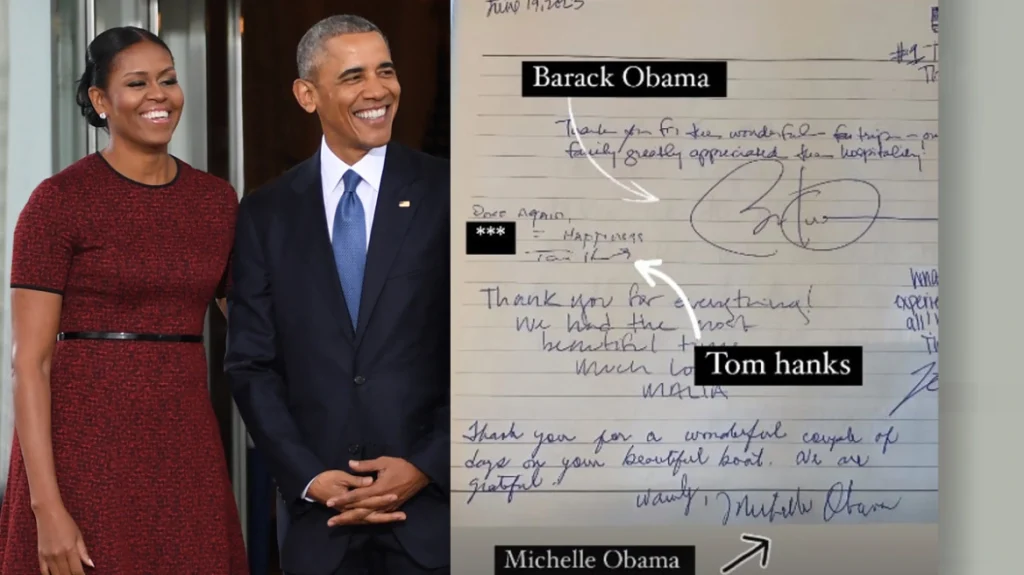 June 19, 2023
#1 T
Barack Obama
Thank you for the wonderful
family greatly appreciated the hospitality
Once Again,
***
= Happiness
Tom
Thank you for everything!
We had the most
beautiful
much
MALIA
experie
all
Tom hanks
Thank you for a wonderful couple of
days on your beautiful boat. We are
grateful.
Warmly, Michelle Obama
Michelle Obama